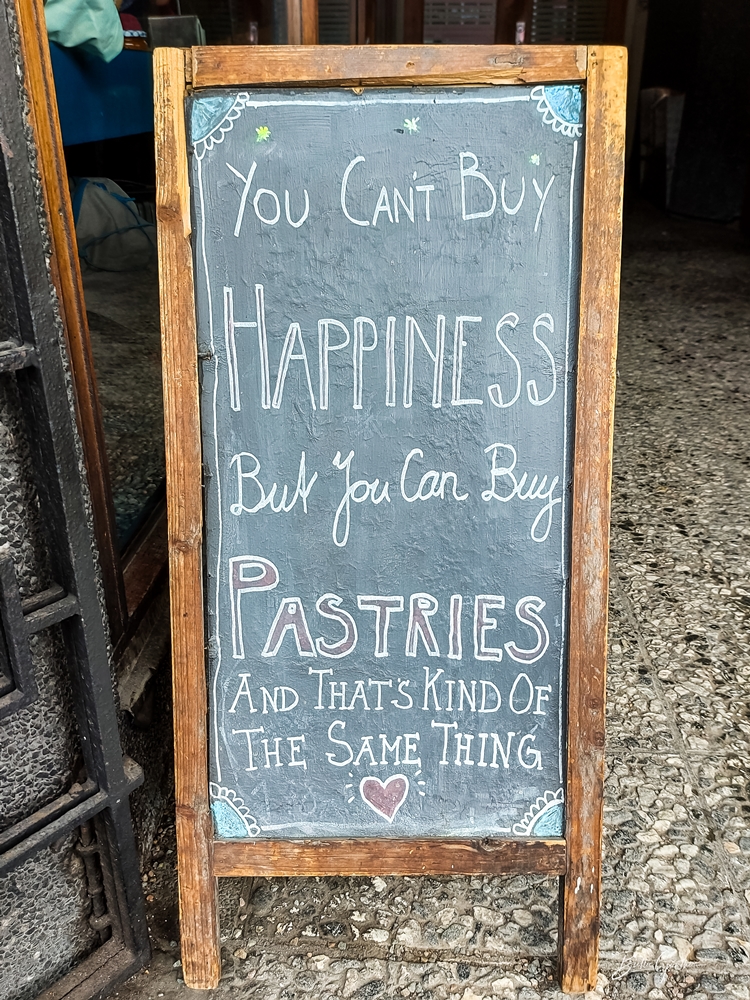 You Can't Buy
Happiness
But You Can Buy
Pastries
And That's Kind Of
The Same Thing